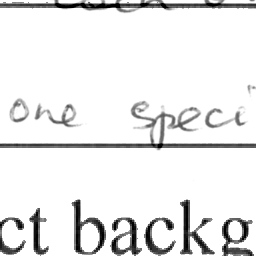 one speci
ct backg